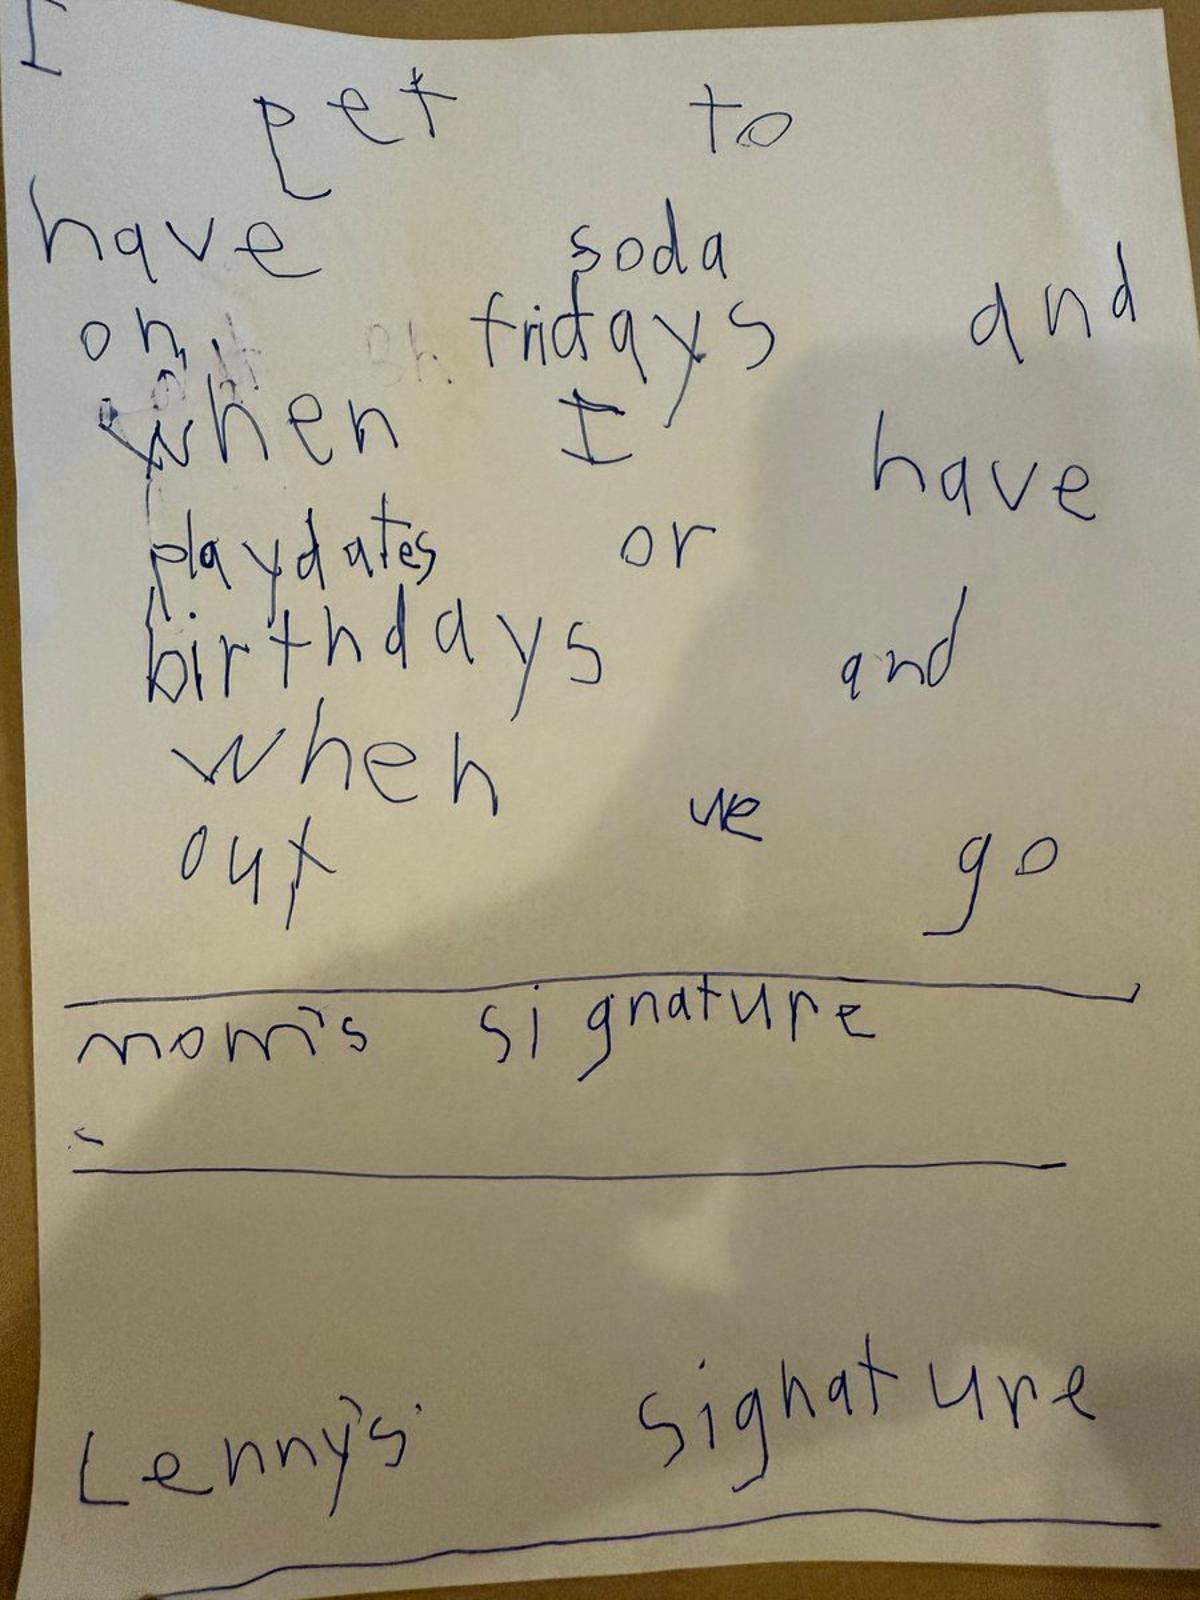 I get to
have soda
on fridays and
when I have
playdates or
birthdays and
when we go
out
mom's signature
Lenny's signature